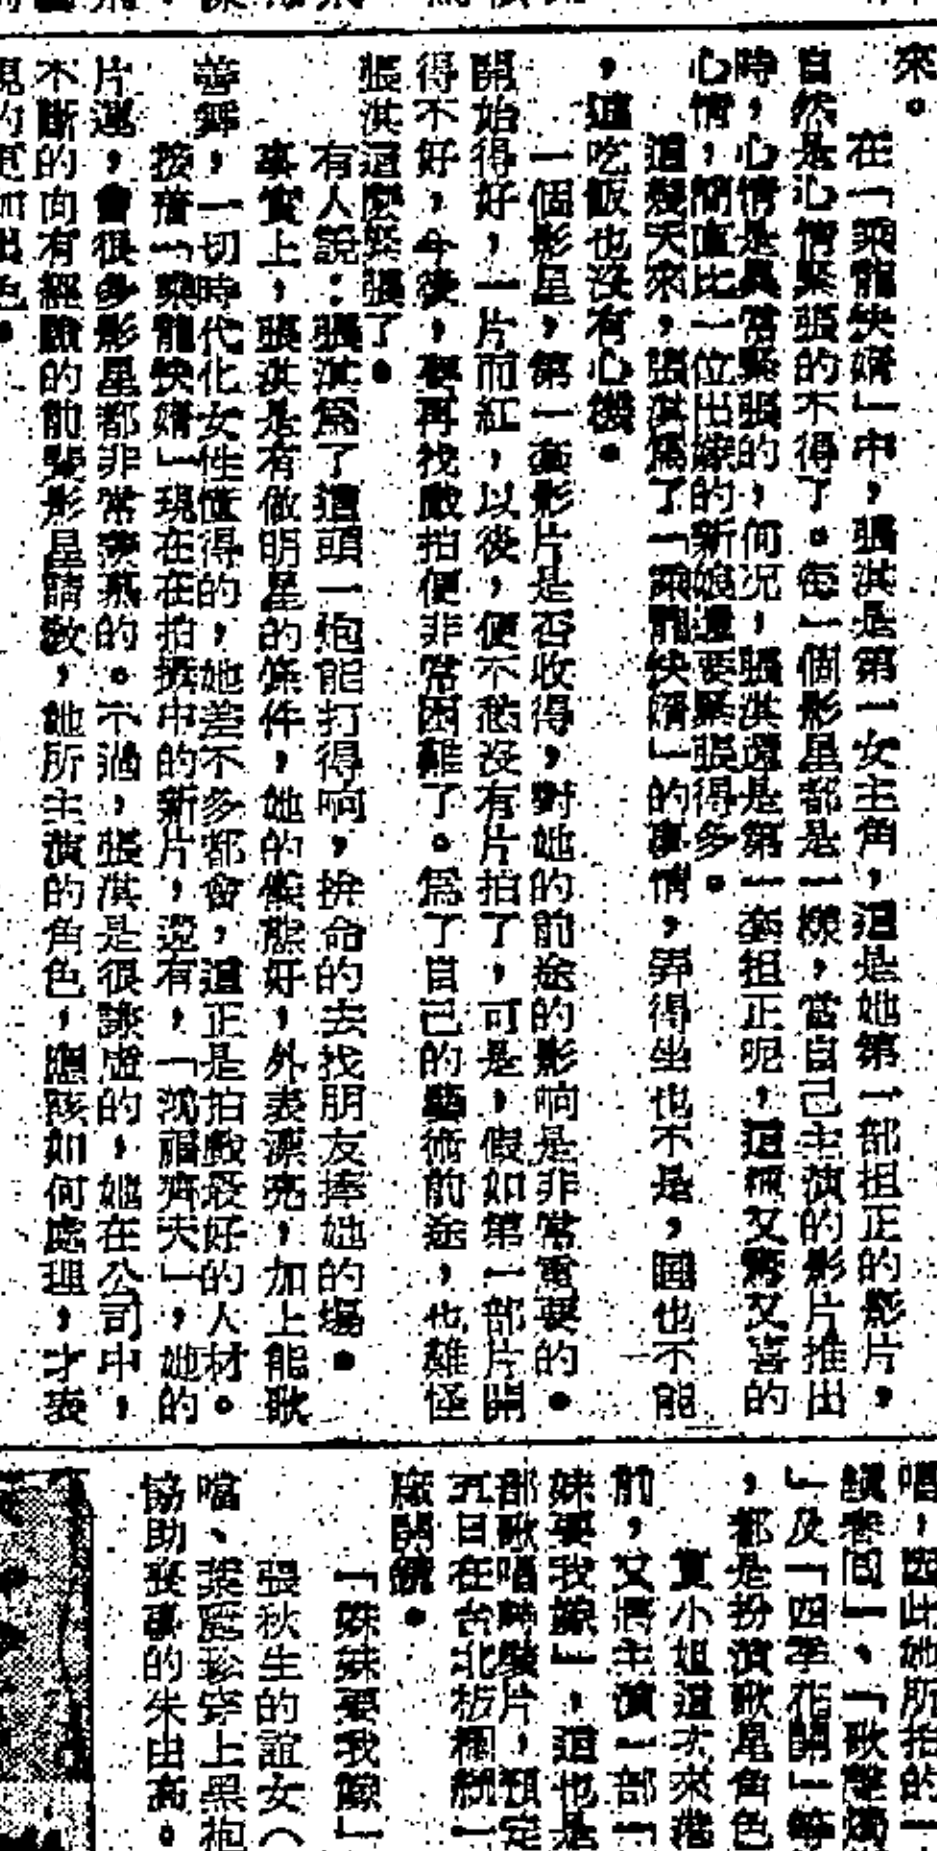 來。
在「乘龍快婿」中，張淇是第一女主角，這是她第一部担正的影片，
自然是心情緊張的不得了。每一個影星都是一樣，當自己主演的影片推出
時，心情是異常緊張的，何况，張淇還是第一套担正呢，這種又驚又喜的
心情，簡直比一位出嫁的新娘還要緊張得多。
這幾天來，張淇爲了「乘龍快婿」的事情，弄得坐也不是，企也不能
，連吃飯也沒有心機。
一個影星，第一套影片是否收得，對她的前途的影响是非常重要的。
開始得好，一片而紅，以後，便不愁沒有片拍了，可是，假如第一部片開
得不好，今後，要再找戲拍便非常困難了。爲了自己的藝術前途，也難怪
張淇這麽緊張了。
有人說：張淇爲了這頭一炮能打得响，拚命的去找朋友捧她的塲。
事實上，張淇是有做明星的條件，她的儀態好，外表漂亮，加上能歌
善舞，一切時代化女性懂得的，她差不多都會，這正是拍戲最好的人材。
接着「乘龍快婿」現在在拍攝中的新片，還有，「鴻福齊天」，她的
片運，會很多影星都非常羨慕的。不過，張淇是很謙虛的，她在公司中，
不斷的向有經驗的前輩影星請敎，她所主演的角色，應該如何處理，才表
現的更加出色。
唱，因此她所拍的一
」及「四季花開」等
，都是扮演歌星角色
小姐這次來港
前，又將主演一部「
妹妹要我嫁」，這也是
部歌唱片，預定
五日在台北板橋
廠開鏡。
「妹妹要我嫁」
張秋生的誼女︵
噹、葉藍珍穿上黑袍
協助喪事的朱由高。